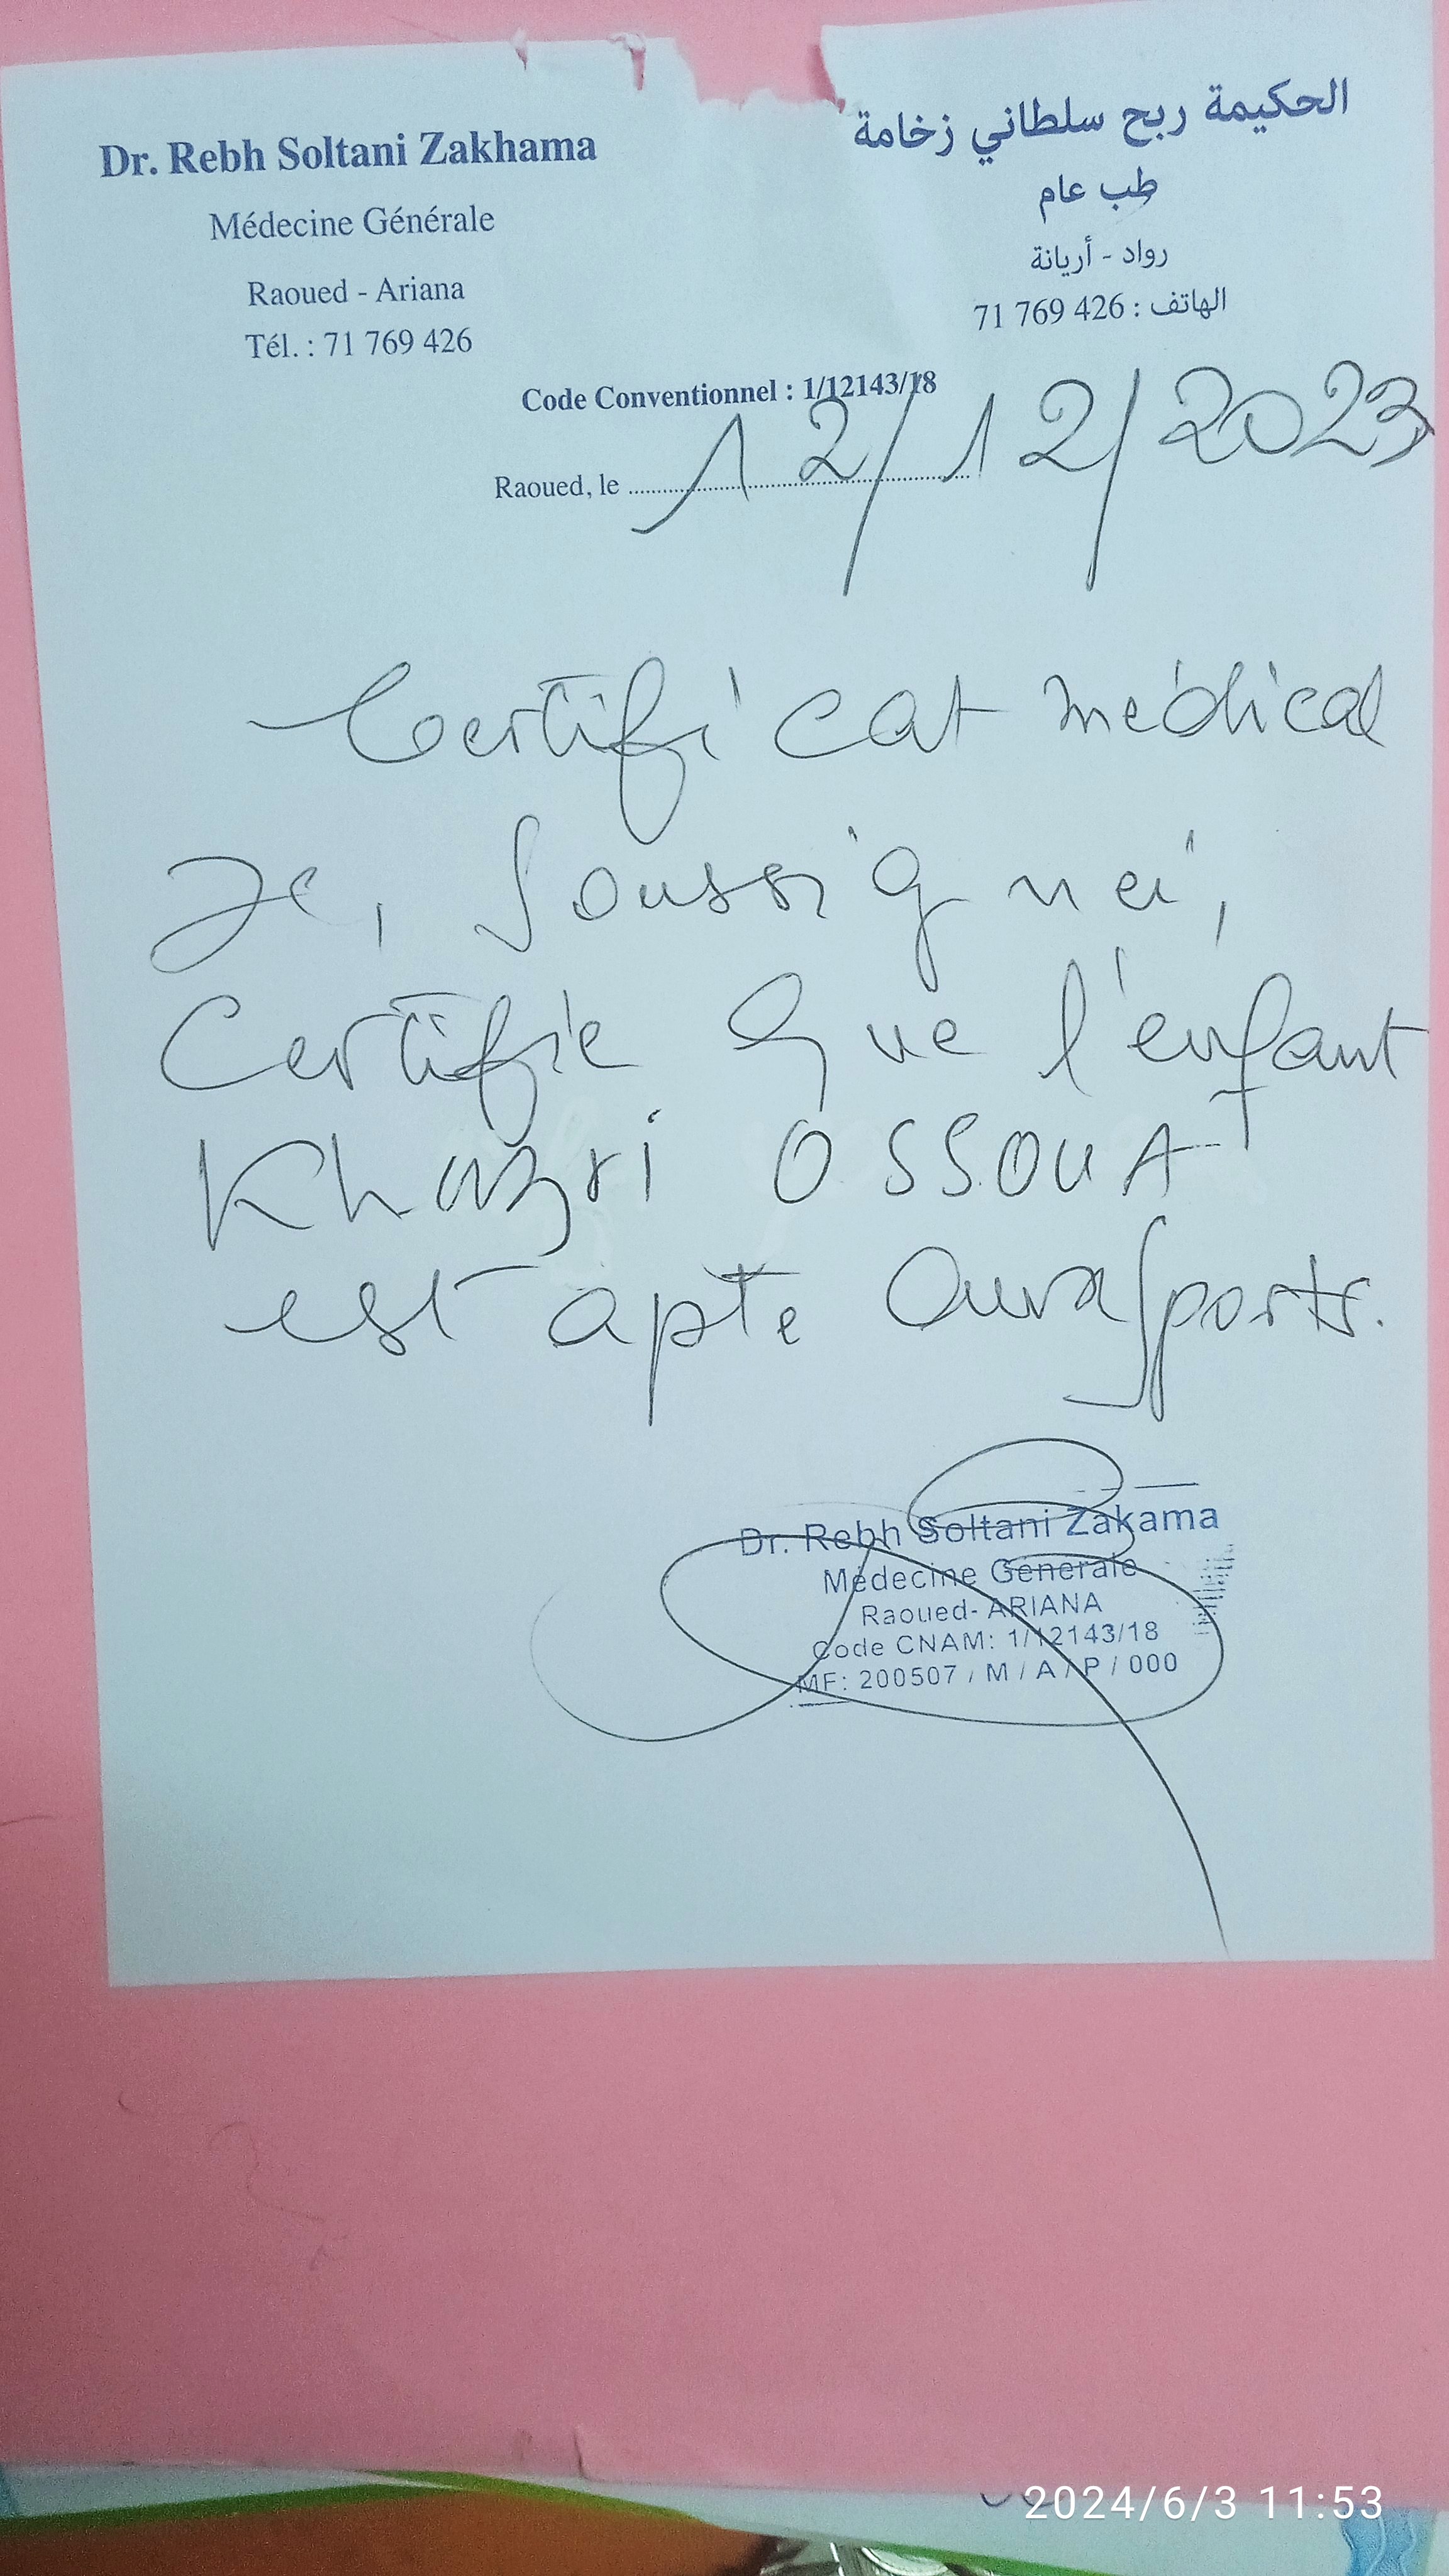 Dr. Rebh Soltani Zakhama
Médecine Générale
Raoued - Ariana
Tél. : 71 769 426
الحكيمة ربح سلطاني زخامة
طب عام
رواد - أريانة
الهاتف : 426 769 71
Code Conventionnel : 1/12143/18
Raoued, le 12/12/2023
Certificat médical
Je, Soussigné,
Certifie que l'enfant
Khazri OSSOUA
est apte aux sports.
Dr. Rebh Soltani Zakama
Médecine Générale
Raoued- ARIANA
Code CNAM: 1/12143/18
MF: 200507 / M / A / P / 000
2024/6/3 11:53